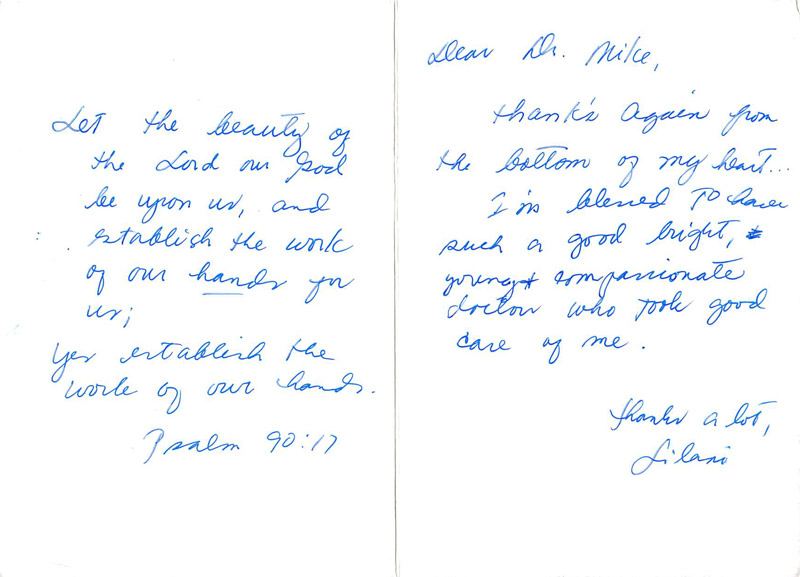 Let the beauty of
the Lord our God
be upon us, and
establish the work
of our hands for
us;
yes establish the
work of our hands.
Psalm 90:17
Dear Dr. Mike,
thank's again from
the bottom of my heart...
I'm blessed TO have
such a good bright,
young & compassionate
doctor who took good
care of me.
thanks a lot,
Lilani